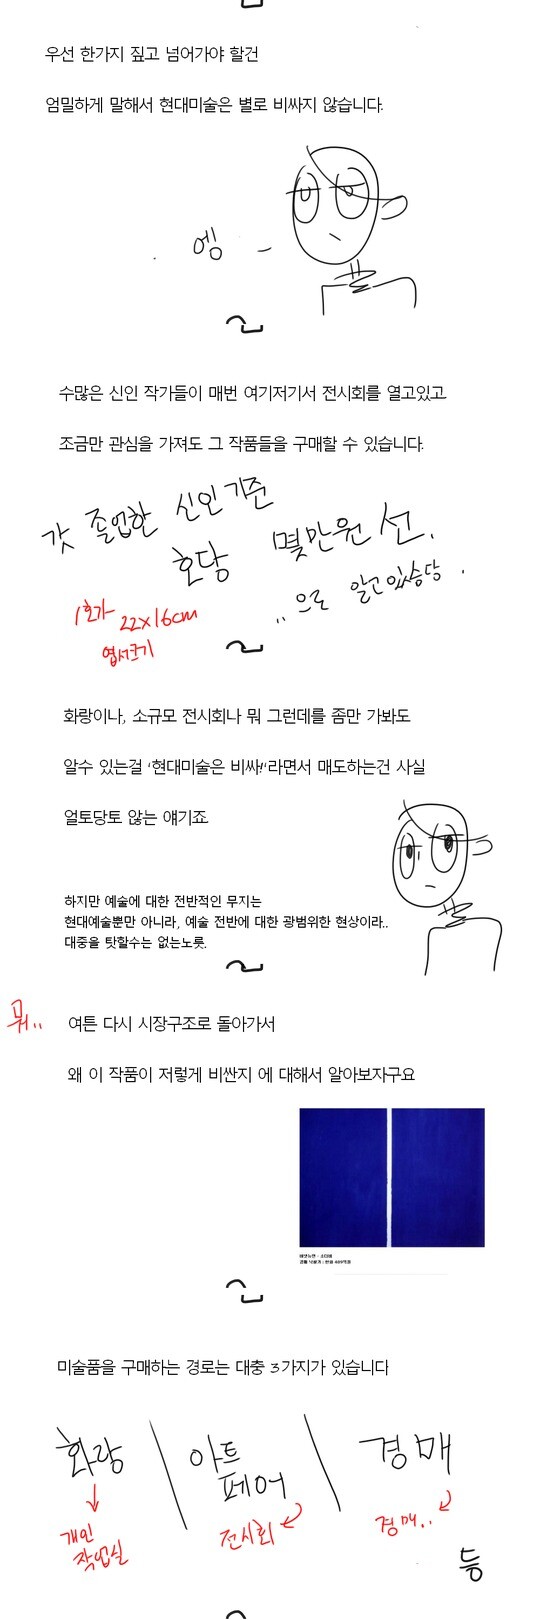 우선 한가지 짚고 넘어가야 할건
엄밀하게 말해서 현대미술은 별로 비싸지 않습니다.
엥
수많은 신인 작가들이 매번 여기저기서 전시회를 열고있고
조금만 관심을 가져도 그 작품들을 구매할 수 있습니다.
갓 졸업한 신인기준
호당 몇만원 선.
..으로 알고있슴당.
1호가 22x16cm
엽서크기
화랑이나, 소규모 전시회나 뭐 그런데를 좀만 가봐도
알수 있는걸 '현대미술은 비싸!'라면서 매도하는건 사실
얼토당토 않는 얘기죠
하지만 예술에 대한 전반적인 무지는
현대예술뿐만 아니라, 예술 전반에 대한 광범위한 현상이라..
대중을 탓할수는 없는노릇.
뭐..
여튼 다시 시장구조로 돌아가서
왜 이 작품이 저렇게 비싼지 에 대해서 알아보자구요
미술품을 구매하는 경로는 대충 3가지가 있습니다
화랑 / 아트페어 / 경매
개인작업실
전시회
경매..
등